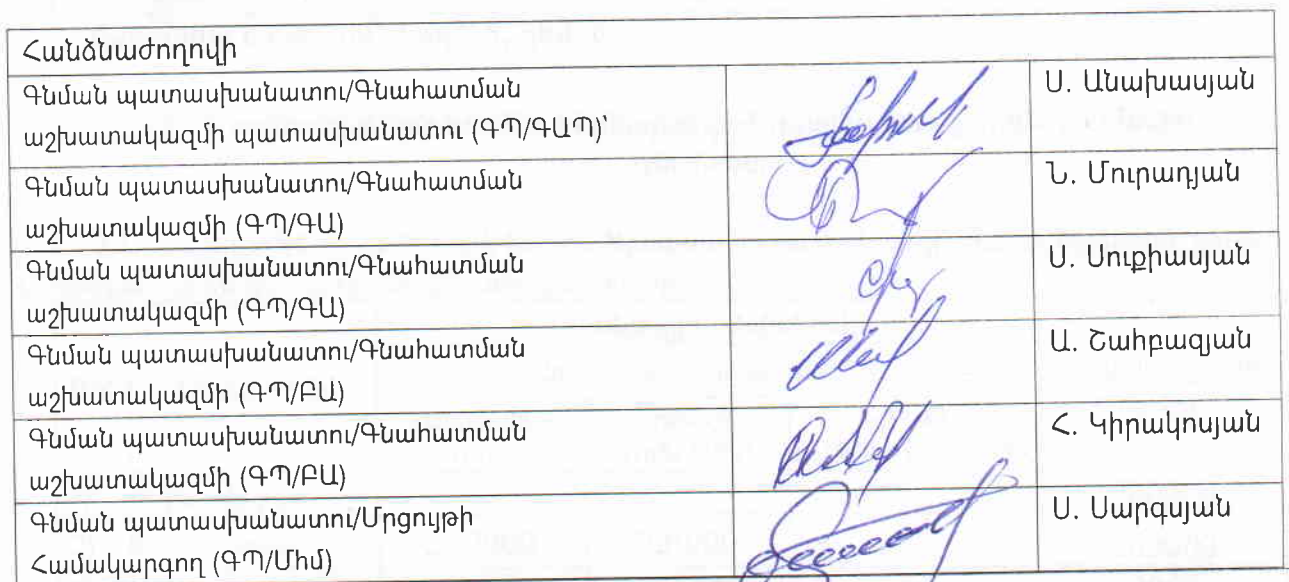 Հանձնաժողովի
Գնման պատասխանատու/Գնահատման
աշխատակազմի պատասխանատու (ԳՊ/ԳԱՊ)՝
Ս. Անախասյան
Գնման պատասխանատու/Գնահատման
աշխատակազմի (ԳՊ/ԳԱ)
Ն. Մուրադյան
Գնման պատասխանատու/Գնահատման
աշխատակազմի (ԳՊ/ԳԱ)
Ս. Սուքիասյան
Գնման պատասխանատու/Գնահատման
աշխատակազմի (ԳՊ/ԲԱ)
Ա. Շահբազյան
Գնման պատասխանատու/Գնահատման
աշխատակազմի (ԳՊ/ԲԱ)
Հ. Կիրակոսյան
Գնման պատասխանատու/Մրցույթի
Համակարգող (ԳՊ/Մհմ)
Ս. Սարգսյան